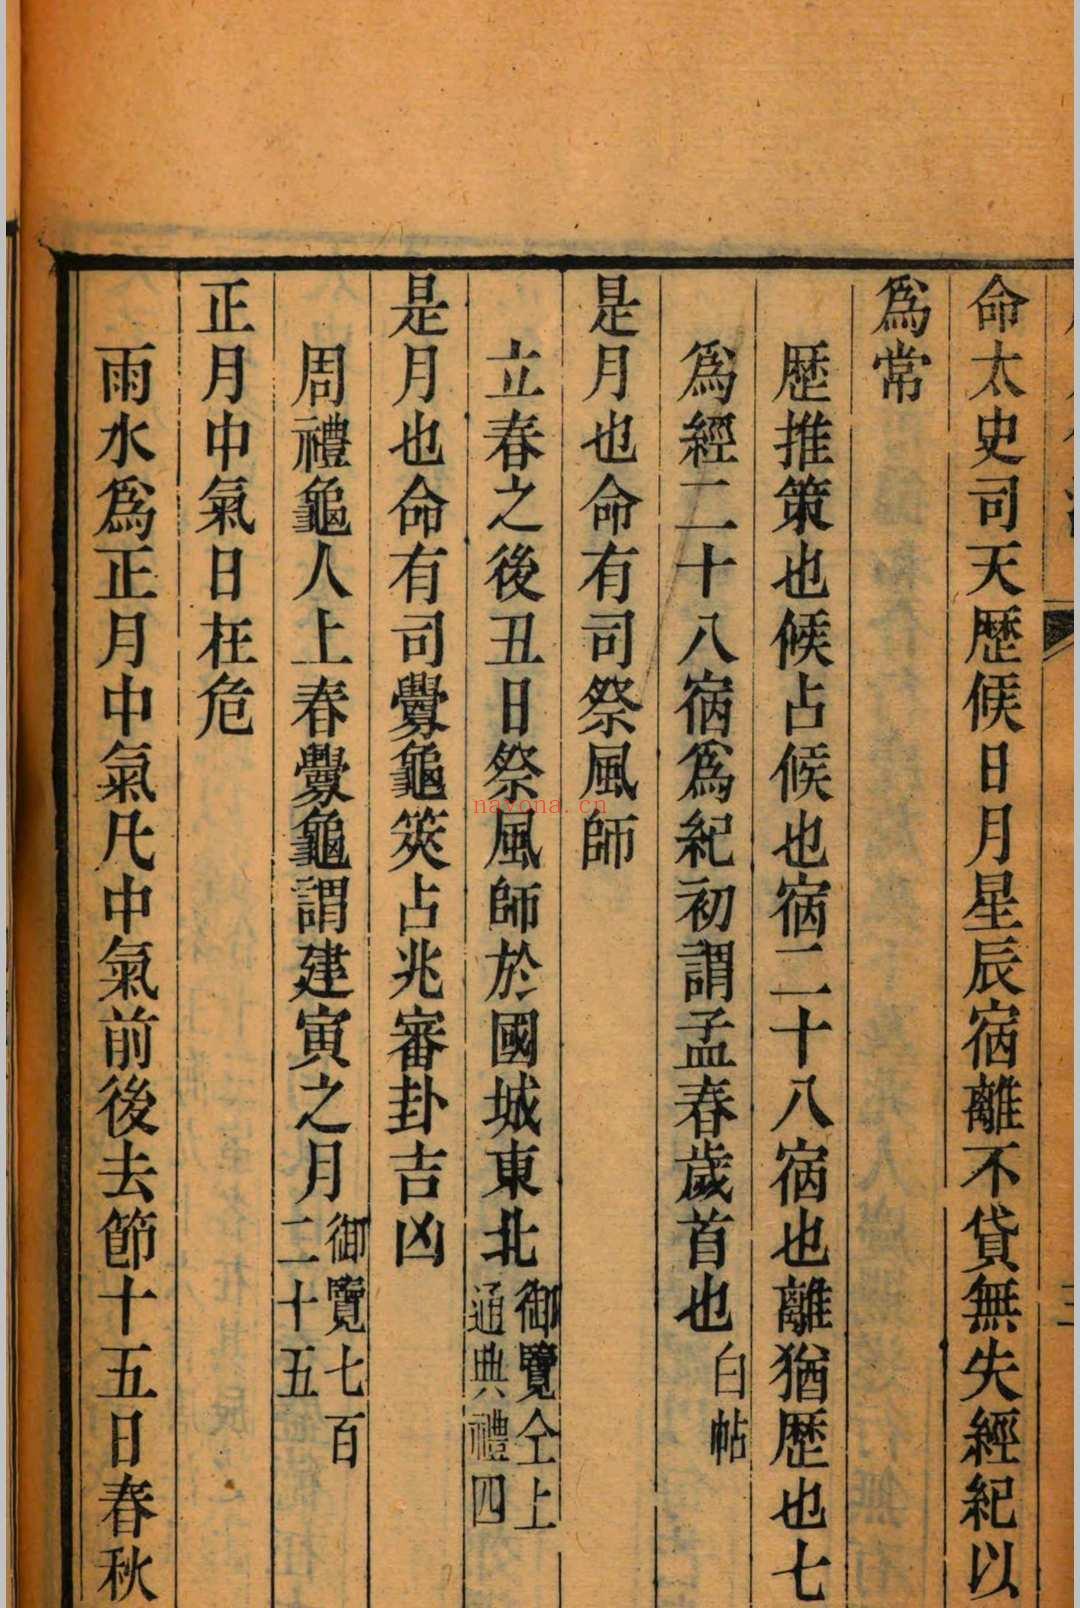 命太史司天歷候日月星辰宿離不貸無失經紀以
爲常
歷推策也候占候也宿二十八宿也離猶歷也七
爲經二十八宿爲紀初謂孟春歲首也白帖
是月也命有司祭風師
立春之後丑日祭風師於國城東北御覽仝上
通典禮四
是月也命有司釁龜筴占兆審卦吉凶
周禮龜人上春釁龜謂建寅之月御覽七百
二十五
正月中氣日在危
雨水爲正月中氣凡中氣前後去節十五日春秋
nayona.cn